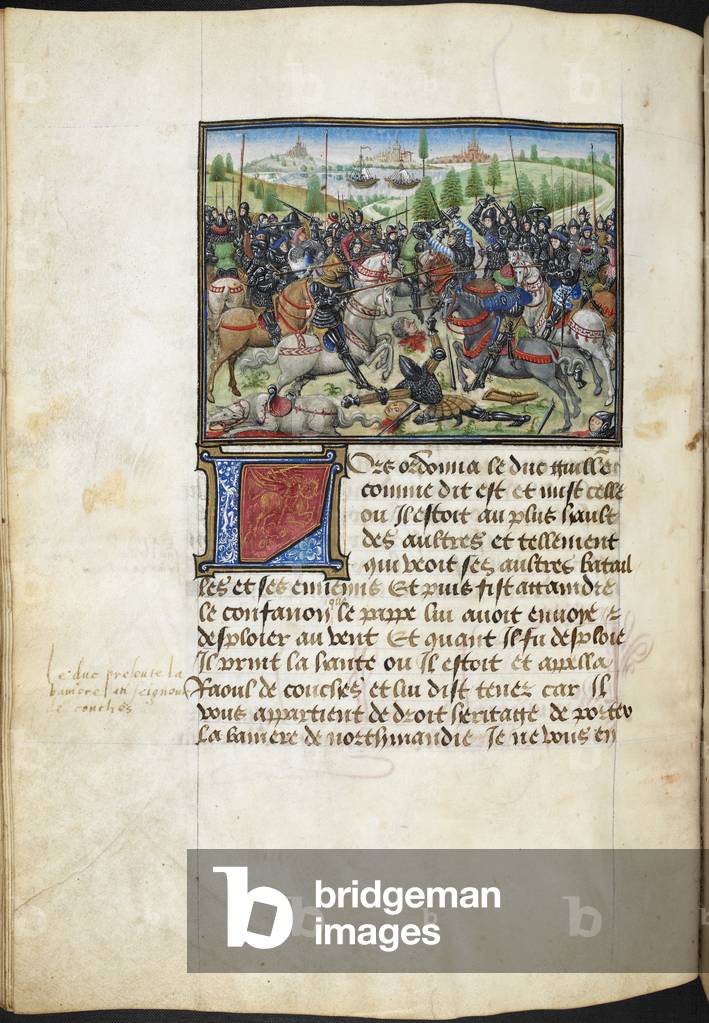 Lors ordonna le duc guille
comme dit est et mist celle
ou Il estoit au plus hault
des aultres et tellement
qui veoit ses aultres batail
les et ses ennemis Et puis fist attaindre
le confanon que le pappe lui avoit envoye
desploier au vent Et quant Il fu desploie
Il print la hante ou Il estoit et appella
Raoul de couches et lui dist tenez car Il
vous appartient de droit heritage de porter
La baniere de northmandie Je ne vous en
Le duc presente la
baniere au seigneur
de couches
bridgeman
images